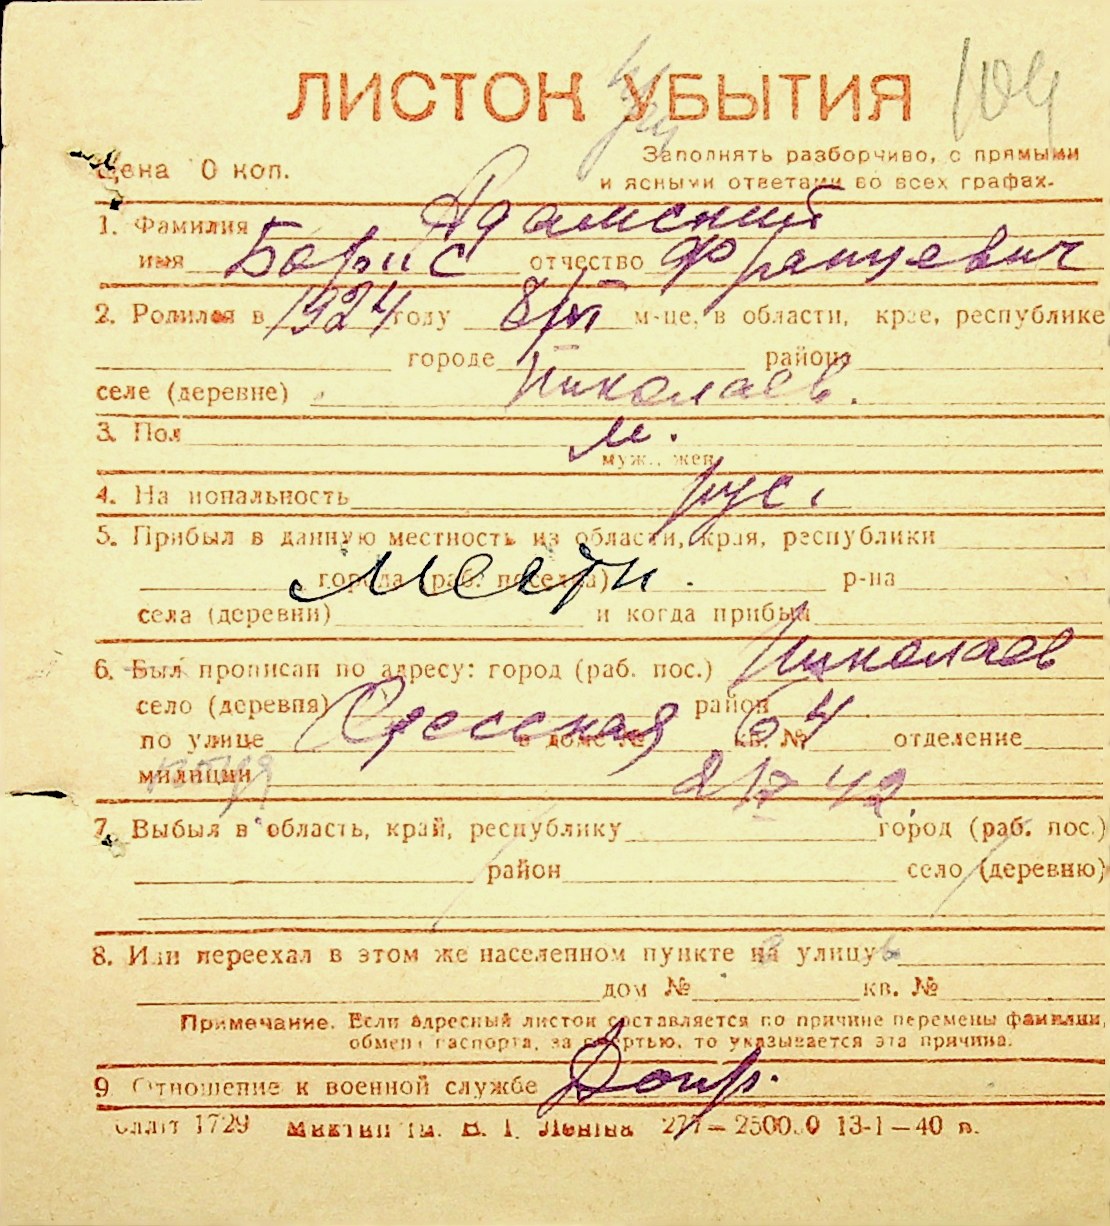 ЛИСТОК УБЫТИЯ
104
Цена 0 коп.
Заполнять разборчиво, с прямыми
и ясными ответами во всех графах.
1. Фамилия Адамский
имя Борис отчество Францевич
2. Родился в 1924 году 8/VI м-це, в области, крае, республике
городе района
селе (деревне) Николаев.
3. Пол м.
муж., жен.
4. На иональность рус.
5. Прибыл в данную местность из области, края, республики
города (раб. поселка) местн. р-на
села (деревни) и когда прибыл
6. Был прописан по адресу: город (раб. пос.) Николаев
село (деревня) район
по улице Одесская в доме № 64 кв. № отделение
милиции 42
7. Выбыл в область, край, республику город (раб. пос.)
район село (деревню)
8. Или переехал в этом же населенном пункте на улицу
дом № кв. №
Примечание. Если адресный листок составляется по причине перемены фамилии,
обмена паспорта, за смертью, то указывается эта причина.
9 Отношение к военной службе Допр.
1729 277 – 2500.0 13-I – 40 в.